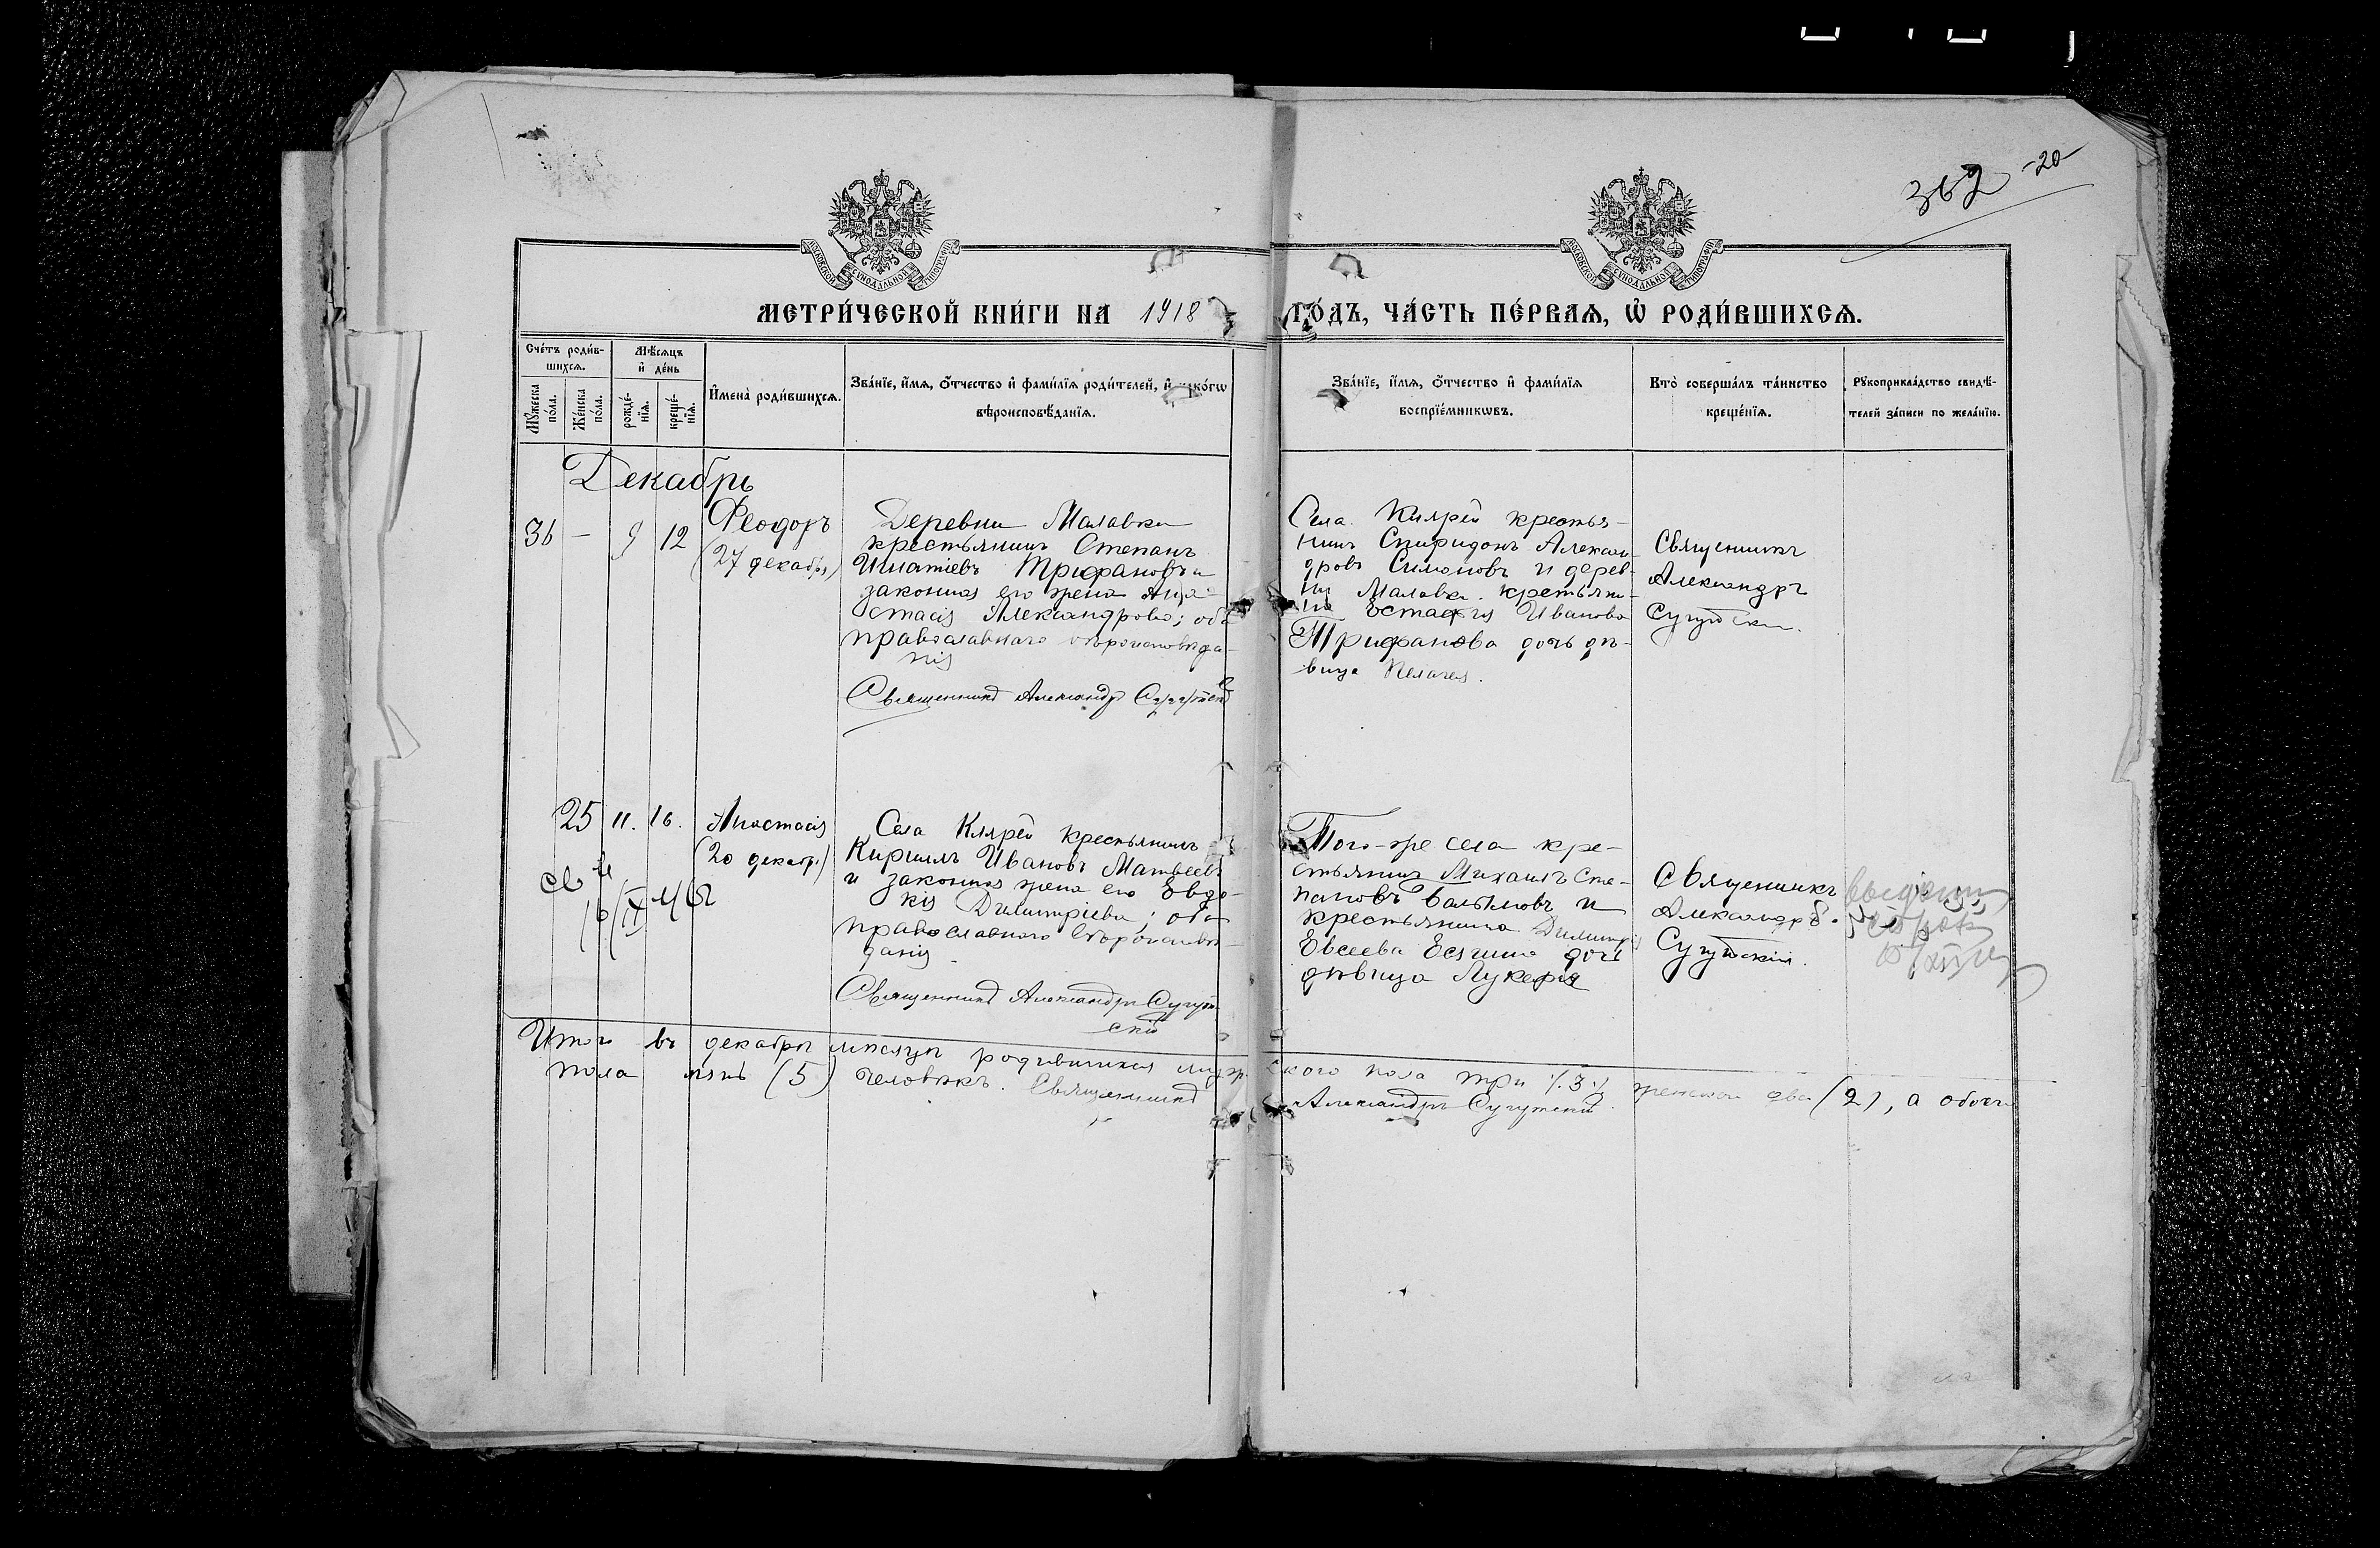 362 -20-
МОСКОВСКОЙ СѴНОДАЛЬНОЙ ТИПОГРАФІИ
МОСКОВСКОЙ СѴНОДАЛЬНОЙ ТИПОГРАФІИ
МЕТРИ́ЧЕСКОЙ КНИ́ГИ НА 1918 ГО́ДЪ, ЧА́СТЬ ПЕ́РВАѦ, Ѡ҆ РОДИ́ВШИХСѦ.
Сче́тъ роди́в-
шихсѧ.
Мꙋ́жеска по́ла.
Же́нска по́ла.
Мѣ́сѧцъ
и҆ де́нь
рожде́-
нїѧ.
креще́-
нїѧ.
И҆мена̀ роди́вшихсѧ.
Зва́нїе, и҆́мѧ, ѻ҆́тчество и҆ фами́лїѧ роди́телей, и҆ како́гѡ
вѣроисповѣ́данїѧ.
Зва́нїе, и҆́мѧ, ѻ҆́тчество и҆ фами́лїѧ
воспрїе́мникѡвъ.
Кто̀ соверша́лъ та́инство
креще́нїѧ.
Рꙋкоприкла́дство свидѣ́-
телей за́писи по жела́нїю.
Декабрь
36 — 9 12
Феодоръ
(27 декабря)
Деревни Малавки
крестьянинъ Степанъ
Игнатіевъ Трифановъ и
законная его жена Ана-
стасія Александрова; оба
православнаго вѣроисповѣда-
нія
Священникъ Александръ Сугутскій
Села Клярей крестья-
нинъ Спиридонъ Алексан-
дровъ Симоновъ и дерев-
ни Малавки крестьяни-
на Естафія Иванова
Трифанова дочь дѣ-
вица Пелагея.
Священникъ
Александръ
Сугутскій.
25 11. 16.
Анастасія
(20 декабр.)
Села Клярей крестьянинъ
Кириллъ Ивановъ Матвеевъ
и законная жена его Евдо-
кія Димитріева; оба
православнаго вѣроисповѣ-
данія
Священникъ Александръ Сугут-
скій
Того-же села кре-
стьянинъ Михаилъ Сте-
пановъ и
крестьянина Димитрія
Евсеева дочь
дѣвица Лукерія
Священникъ
Александръ
Сугутскій.
Итого въ декабрѣ мѣсяцѣ родившихся мужского пола три (3), женскаго два (2), а обоего
пола пять (5) человѣкъ. Священникъ Александръ Сугутскій.